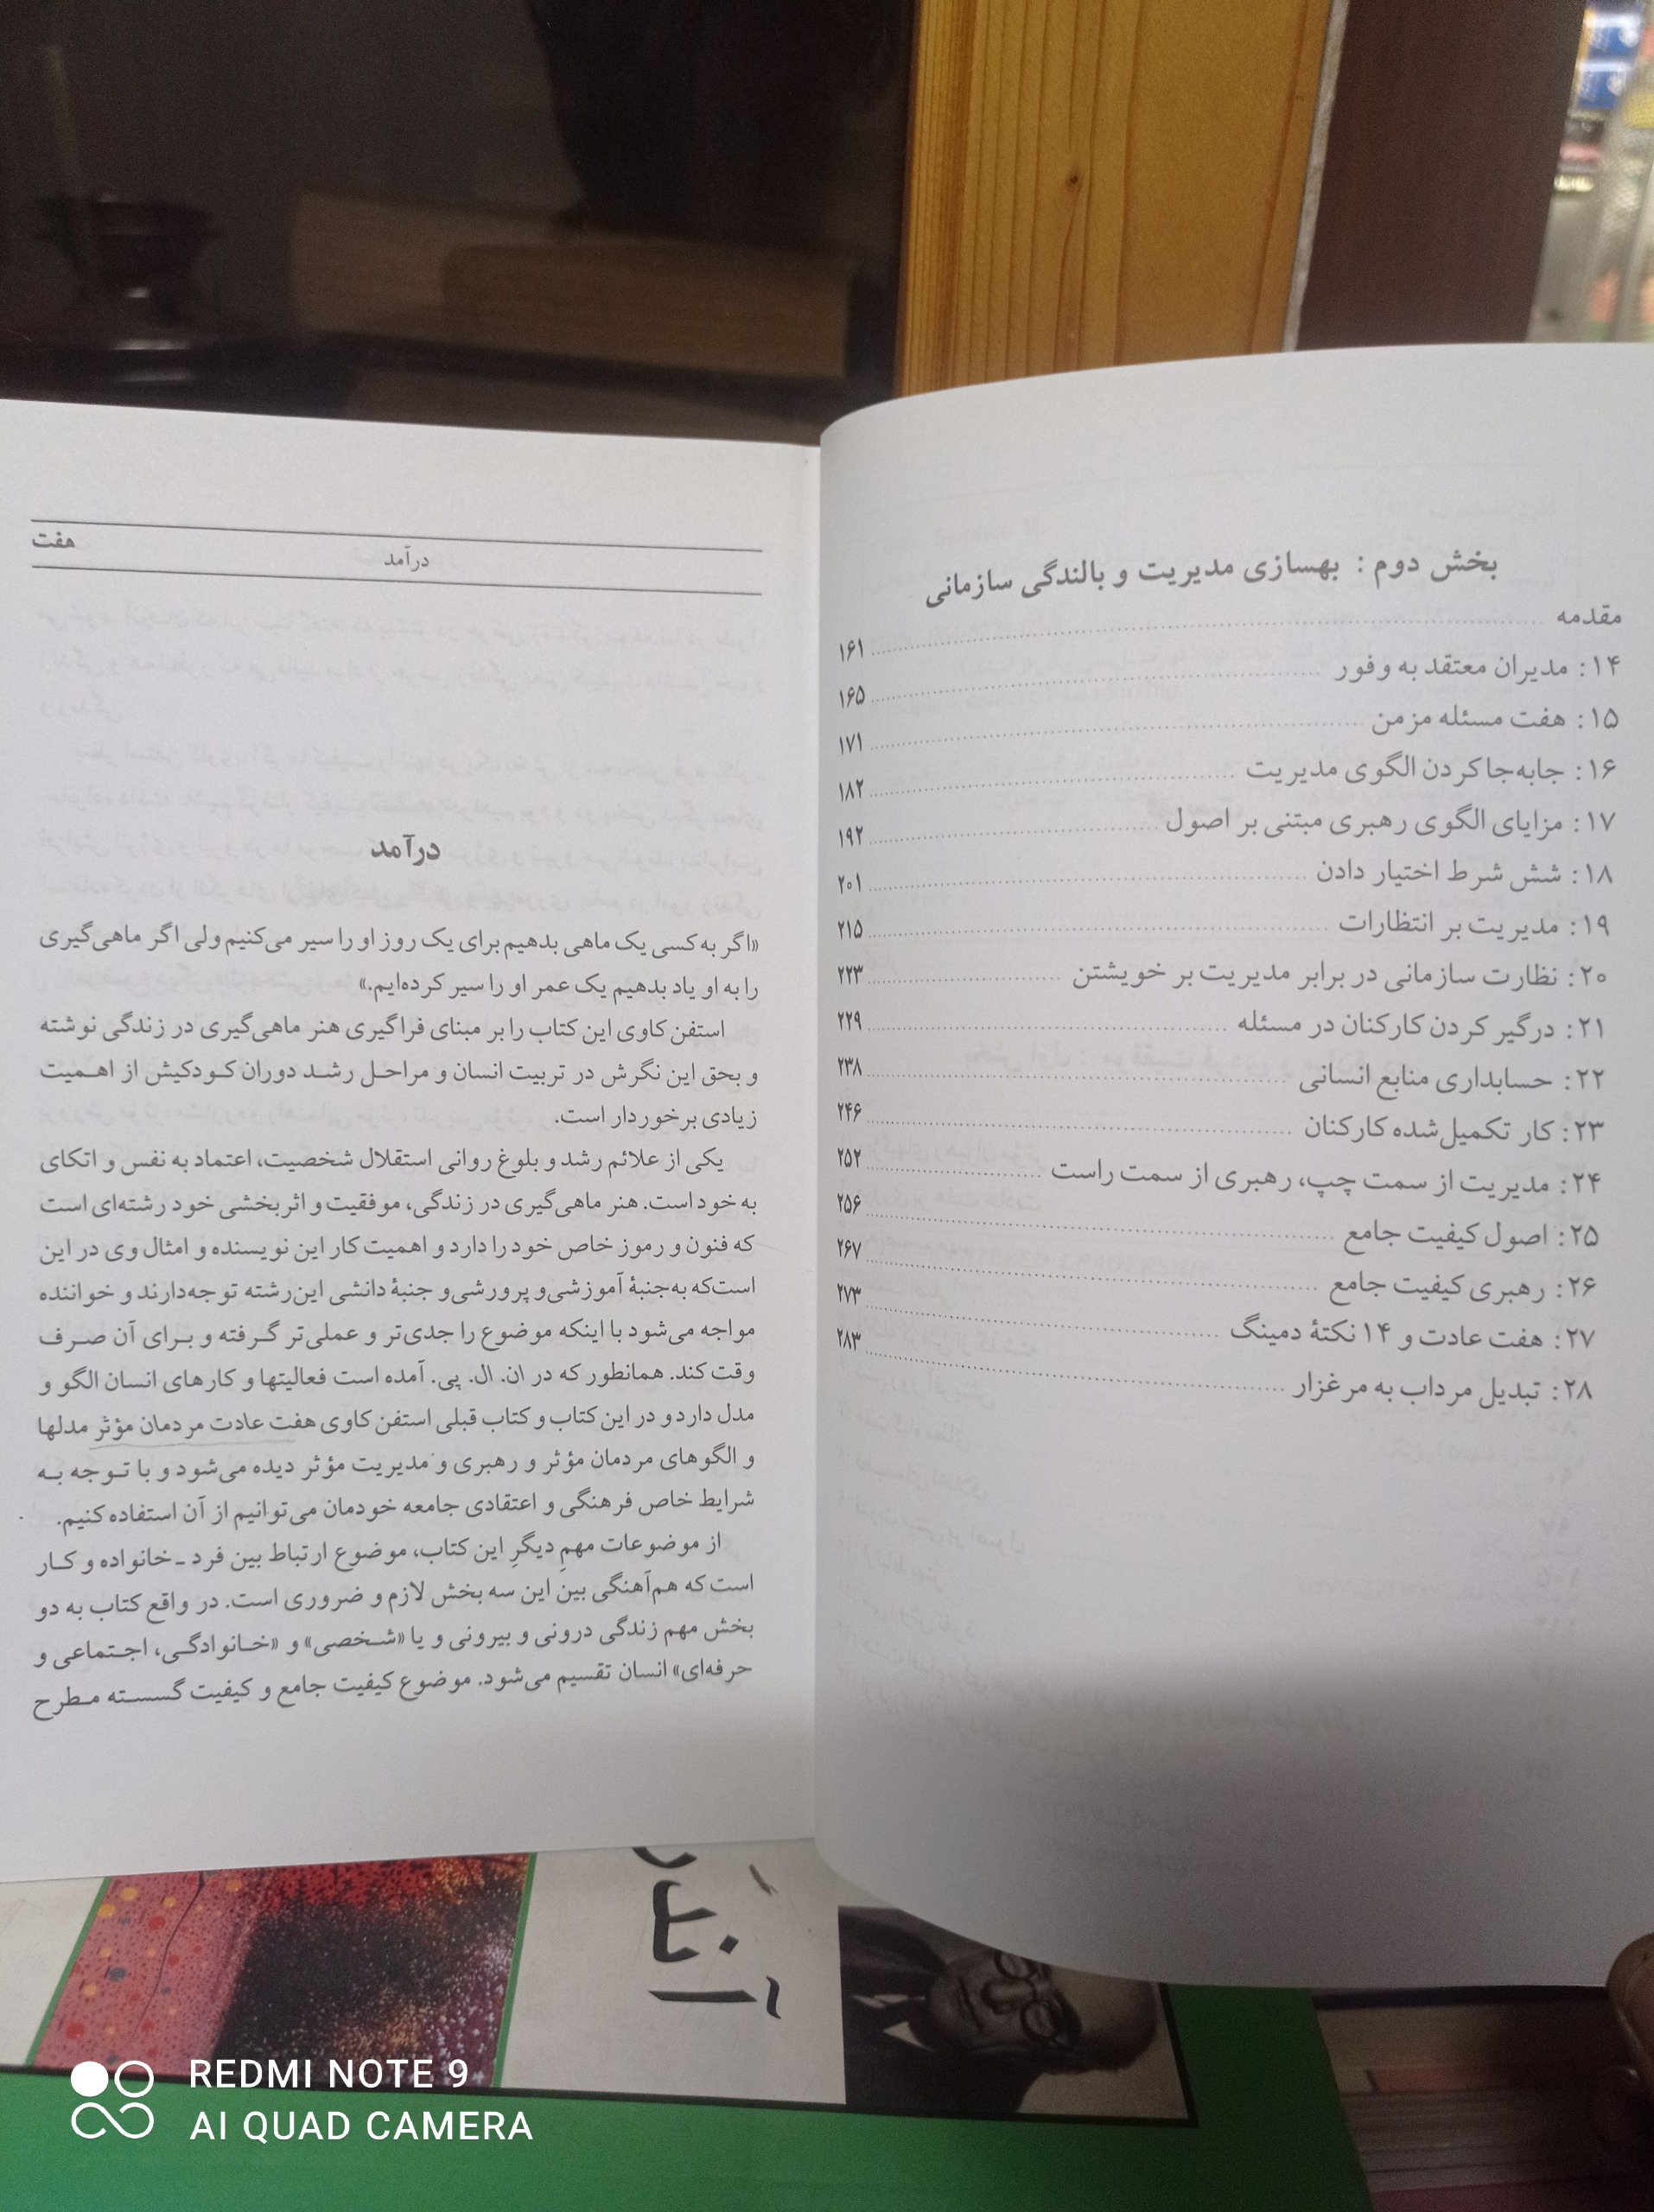 بخش دوم : بهسازی مدیریت و بالندگی سازمانی
مقدمه ۱۶۱
۱۴: مدیران معتقد به وفور ۱۶۵
۱۵: هفت مسئله مزمن ۱۷۱
۱۶: جابه‌جا کردن الگوی مدیریت ۱۸۲
۱۷: مزایای الگوی رهبری مبتنی بر اصول ۱۹۲
۱۸: شش شرط اختیار دادن ۲۰۱
۱۹: مدیریت بر انتظارات ۲۱۵
۲۰: نظارت سازمانی در برابر مدیریت بر خویشتن ۲۲۳
۲۱: درگیر کردن کارکنان در مسئله ۲۲۹
۲۲: حسابداری منابع انسانی ۲۳۸
۲۳: کار تکمیل‌شده کارکنان ۲۴۶
۲۴: مدیریت از سمت چپ، رهبری از سمت راست ۲۵۲
۲۵: اصول کیفیت جامع ۲۵۶
۲۶: رهبری کیفیت جامع ۲۶۷
۲۷: هفت عادت و ۱۴ نکتهٔ دمینگ ۲۷۳
۲۸: تبدیل مرداب به مرغزار ۲۸۳
درآمد هفت
درآمد
«اگر به کسی یک ماهی بدهیم برای یک روز او را سیر می‌کنیم ولی اگر ماهی‌گیری
را به او یاد بدهیم یک عمر او را سیر کرده‌ایم.»
استفن کاوی این کتاب را بر مبنای فراگیری هنر ماهی‌گیری در زندگی نوشته
و بحق این نگرش در تربیت انسان و مراحل رشد دوران کودکیش از اهمیت
زیادی برخوردار است.
یکی از علائم رشد و بلوغ روانی استقلال شخصیت، اعتماد به نفس و اتکای
به خود است. هنر ماهی‌گیری در زندگی، موفقیت و اثربخشی خود رشته‌ای است
که فنون و رموز خاص خود را دارد و اهمیت کار این نویسنده و امثال وی در این
است‌که به‌جنبهٔ آموزشی‌و پرورشی‌و جنبهٔ دانشی این‌رشته توجه‌دارند و خواننده
مواجه می‌شود با اینکه موضوع را جدی‌تر و عملی‌تر گرفته و برای آن صرف
وقت کند. همانطور که در ان. ال. پی. آمده است فعالیتها و کارهای انسان الگو و
مدل دارد و در این کتاب و کتاب قبلی استفن کاوی هفت عادت مردمان مؤثر مدلها
و الگوهای مردمان مؤثر و رهبری و مدیریت مؤثر دیده می‌شود و با توجه به
شرایط خاص فرهنگی و اعتقادی جامعه خودمان می‌توانیم از آن استفاده کنیم.
از موضوعات مهمِ دیگرِ این کتاب، موضوع ارتباط بین فرد ـ خانواده و کار
است که هم‌آهنگی بین این سه بخش لازم و ضروری است. در واقع کتاب به دو
بخش مهم زندگی درونی و بیرونی و یا «شخصی» و «خانوادگی، اجتماعی و
حرفه‌ای» انسان تقسیم می‌شود. موضوع کیفیت جامع و کیفیت گسسته مطرح
REDMI NOTE 9
AI QUAD CAMERA